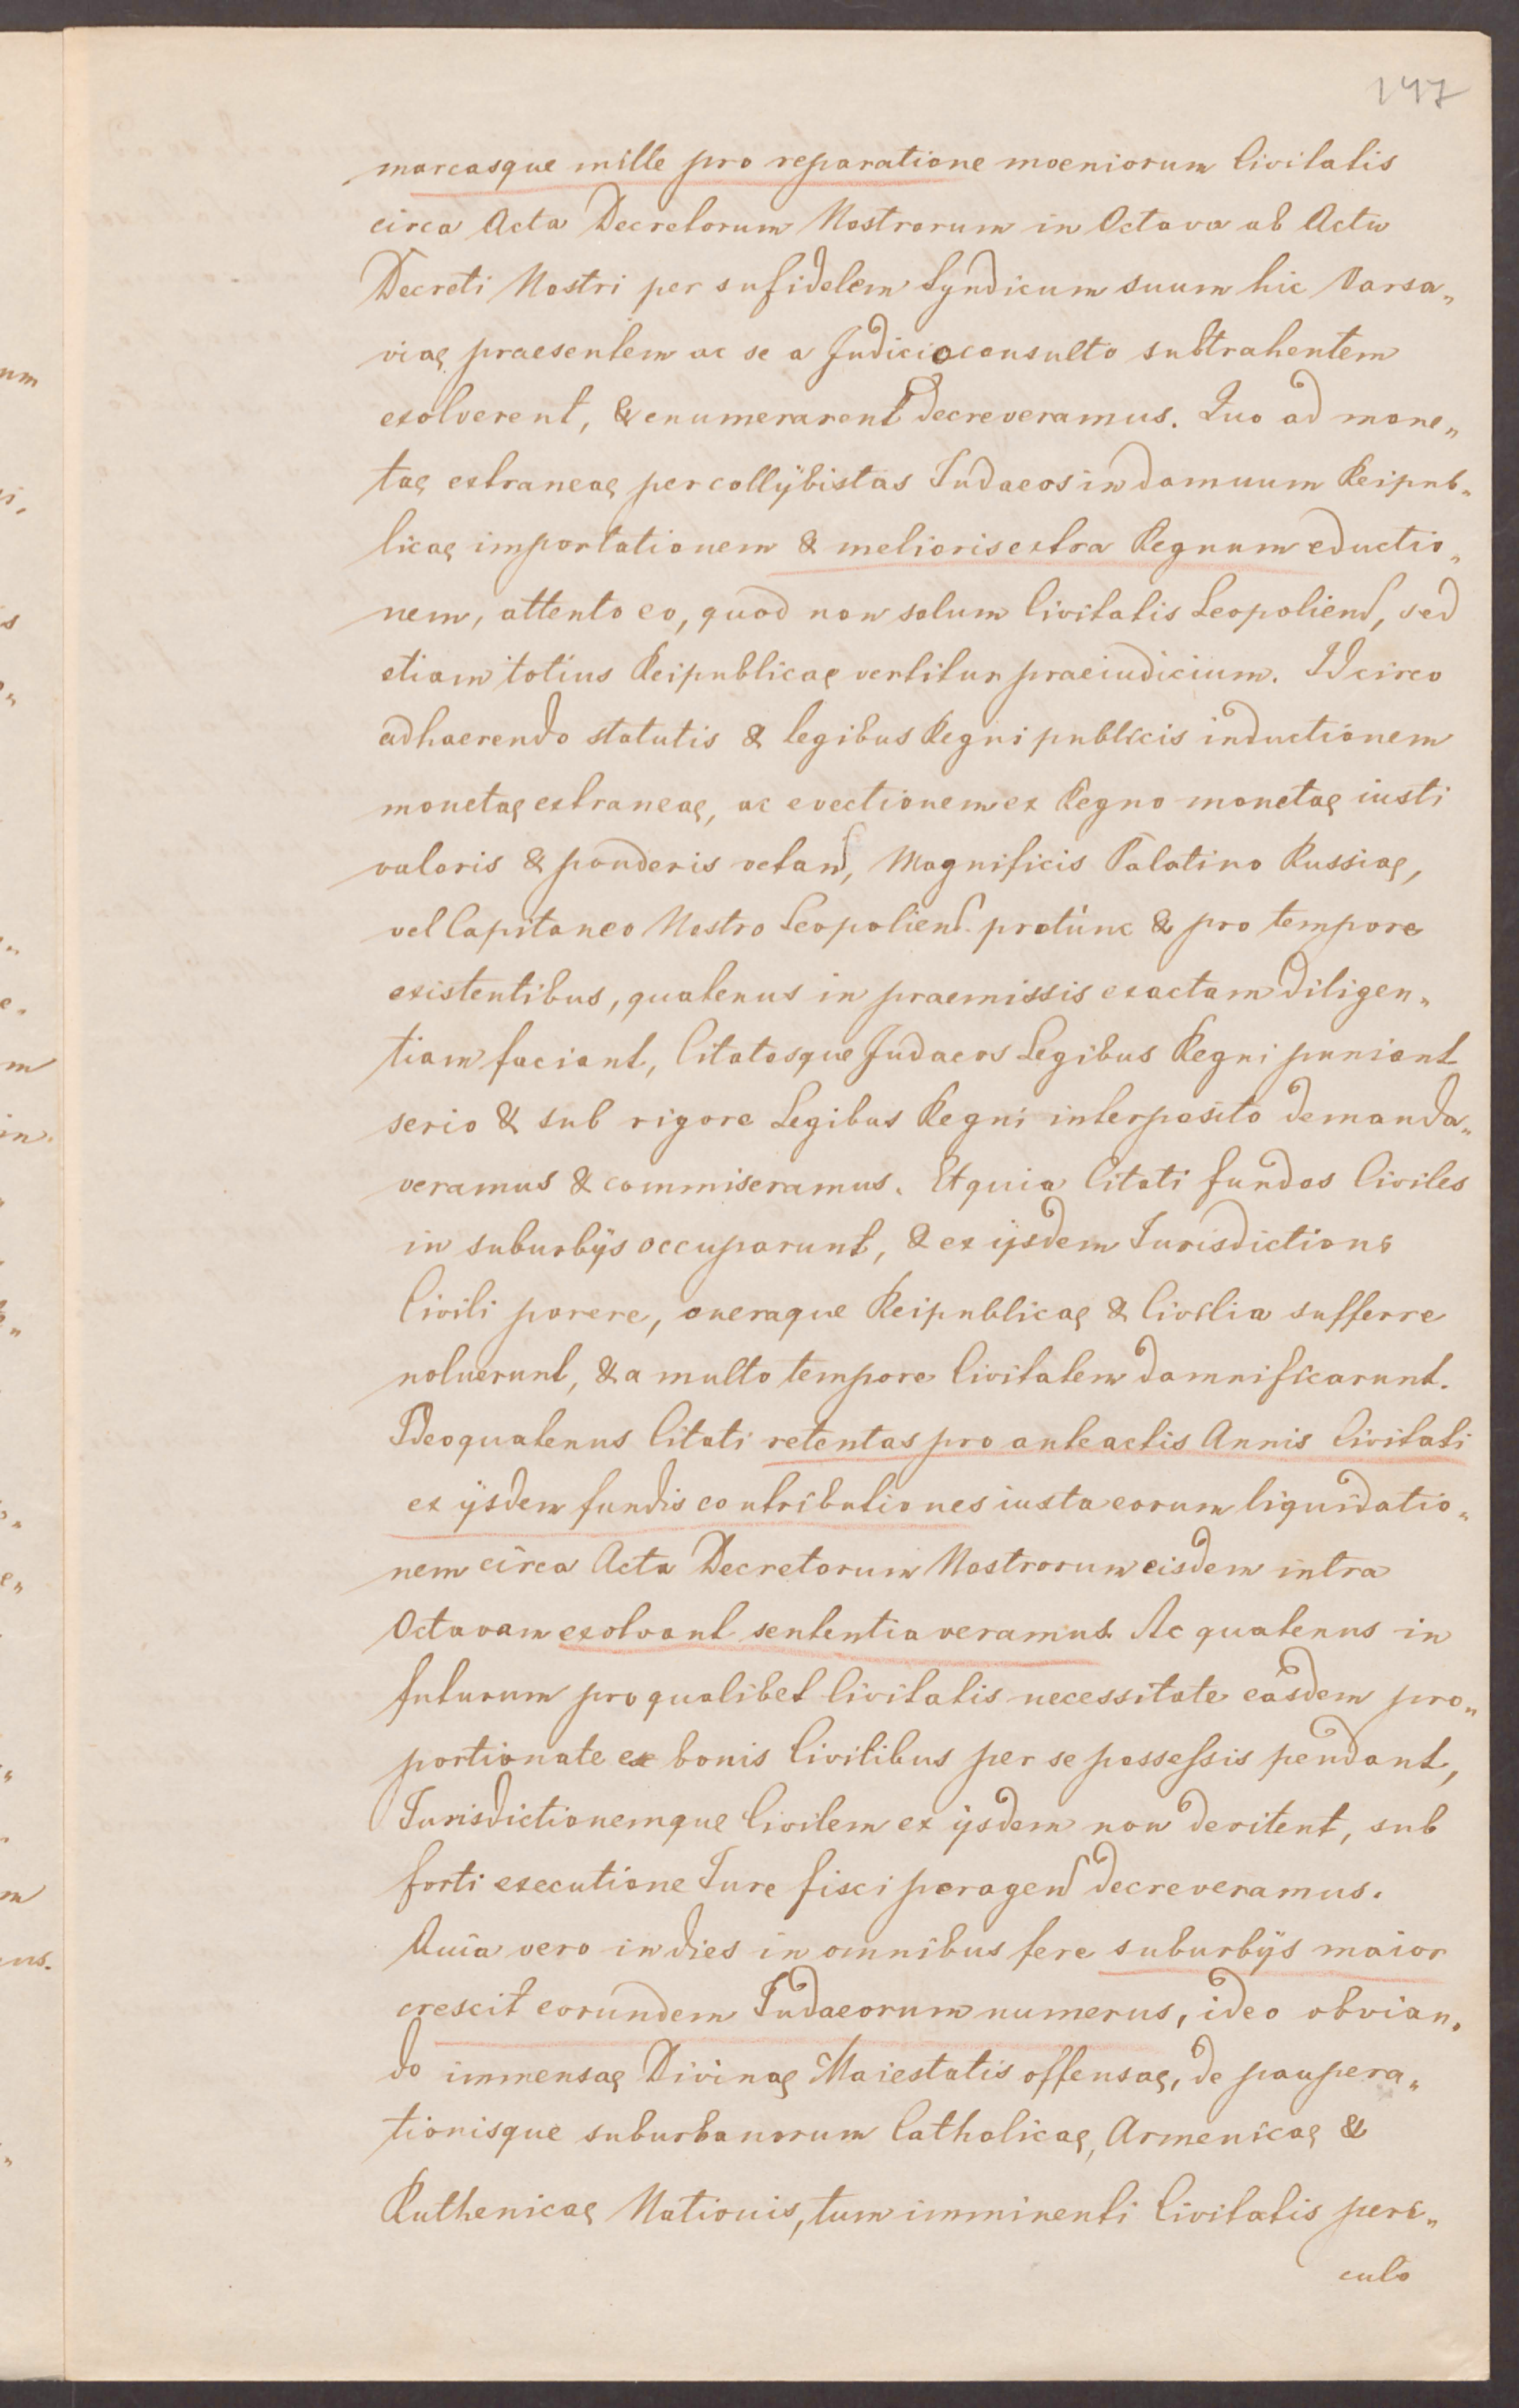 147
marcasque mille pro reparatione moeniorum Civitatis
circa Acta Decretorum Nostrorum in Octava ab Actu
Decreti Nostri per sufidelem Syndicum suum hic Varsa„
viaę praesentem ac se a Judicio consulto subtrahentem
exolverent, & enumerarent decreveramus. Quo ad mone„
taę extraneaę per collÿbistas Iudaeos in damnum Reipub„
licaę importationem & melioris extra Regnum eductio„
nem, attento eo, quod non solum Civitatis Leopolien̄, sed
etiam totius Reipublicaę vertitur praeiudicium. Idcirco
adhaerendo statutis & legibus Regni publicis inductionem
monetaę extraneaę, ac evectionem ex Regno monetaę iusti
valoris & ponderis vetan̄, Magnificis Palatino Russiaę,
vel Capitaneo Nostro Leopolien̄. protunc & pro tempore
existentibus, quatenus in praemissis exactam diligen„
tiam faciant, Citatosque Judaeos Legibus Regni puniant
serio & sub rigore Legibus Regni interposito demanda„
veramus & commiseramus. Et quia Citati fundos Civiles
in suburbÿs occuparunt, & ex ijsdem Iurisdictione
Civili parere, oneraque Reipublicaę & Civilia sufferre
noluerunt, & a multo tempore Civitatem damnificarunt.
Ideo quatenus Citati retentas pro anteactis Annis Civitati
ex ÿsdem fundis contributiones iuxta eorum liquidatio„
nem circa Acta Decretorum Nostrorum eisdem intra
Octavam exolvant sententiaveramus. Ac quatenus in
futurum pro qualibet Civitatis necessitate easdem pro„
portionate ex bonis Civilibus per se possessis pendant,
Iurisdictionemque Civilem ex ÿsdem non devitent, sub
forti executione Iure fisci peragen̄ decreveramus.
Quia vero in dies in omnibus fere suburbÿs maior
crescit eorundem Iudaeorum numerus, ideo obvian„
do immensaę Divinaę Maiestatis offensaę, de paupera„
tionisque suburbanorum Catholicaę, Armenicaę &
Ruthenicaę Nationis, tum imminenti Civitatis peri„
culo